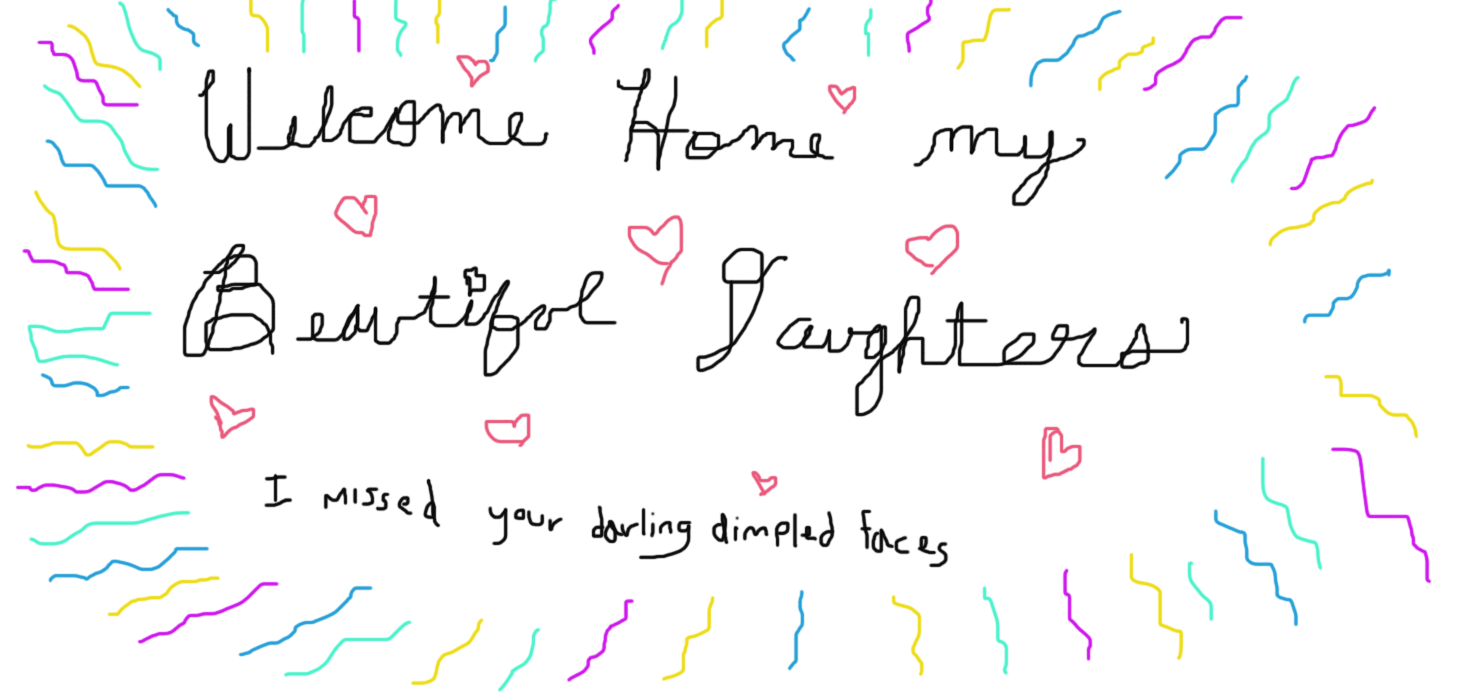 Welcome Home my
Beautiful Daughters
I missed your darling dimpled faces